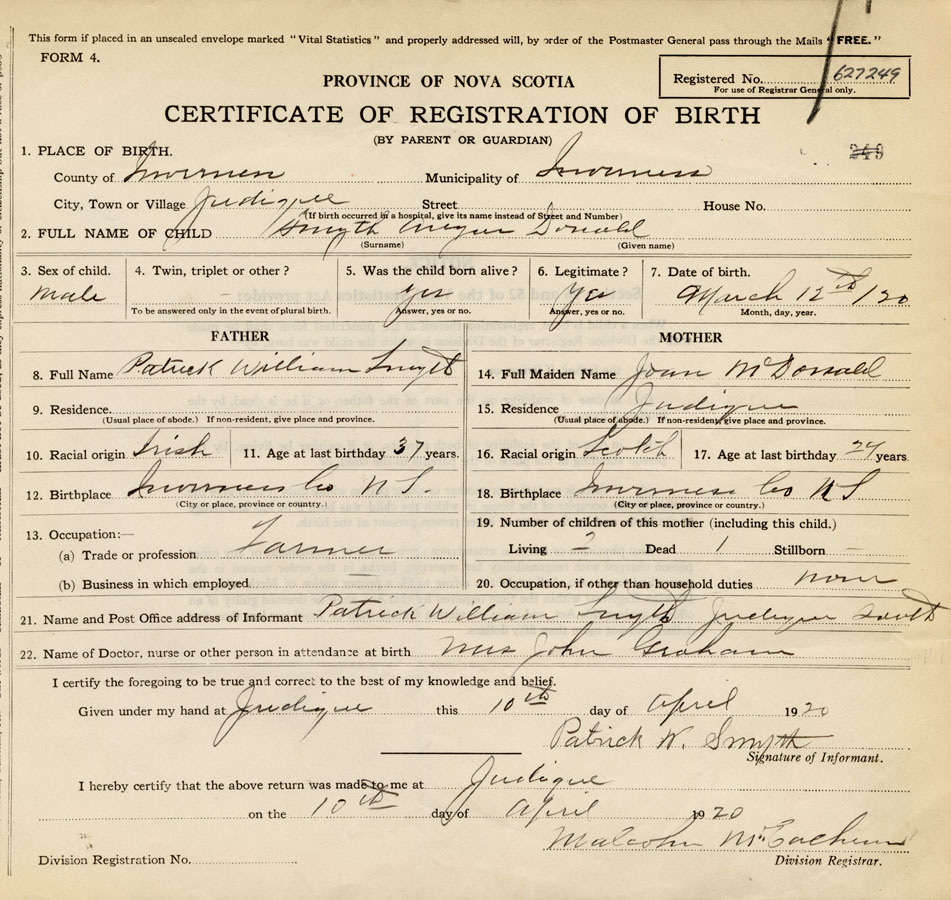 This form if placed in an unsealed envelope marked "Vital Statistics" and properly addressed will, by order of the Postmaster General pass through the Mails "FREE."
FORM 4.
Registered No. 627249
For use of Registrar General only.
PROVINCE OF NOVA SCOTIA
CERTIFICATE OF REGISTRATION OF BIRTH
(BY PARENT OR GUARDIAN)
249
1. PLACE OF BIRTH.
County of Inverness Municipality of Inverness
City, Town or Village Judique Street House No.
(If birth occurred in a hospital, give its name instead of Street and Number)
2. FULL NAME OF CHILD Smyth Angus Donald
(Surname) (Given name)
3. Sex of child. 4. Twin, triplet or other? 5. Was the child born alive? 6. Legitimate? 7. Date of birth.
Male – Yes Yes March 12th/20
To be answered only in the event of plural birth. Answer, yes or no. Answer, yes or no. Month, day, year.
FATHER MOTHER
8. Full Name Patrick William Smyth
14. Full Maiden Name Joan McDonald
9. Residence.
(Usual place of abode.) If non-resident, give place and province.
15. Residence Judique
(Usual place of abode.) If non-resident, give place and province.
10. Racial origin Irish 11. Age at last birthday 37 years.
16. Racial origin Scotch 17. Age at last birthday years.
12. Birthplace Inverness Co N S.
(City or place, province or country.)
18. Birthplace Inverness Co N S
(City or place, province or country.)
13. Occupation:—
(a) Trade or profession Farmer
(b) Business in which employed —
19. Number of children of this mother (including this child.)
Living 2 Dead 1 Stillborn —
20. Occupation, if other than household duties none
21. Name and Post Office address of Informant Patrick William Smyth Judique South
22. Name of Doctor, nurse or other person in attendance at birth Mrs John Graham
I certify the foregoing to be true and correct to the best of my knowledge and belief.
Given under my hand at Judique this 10th day of April 1920
Patrick W. Smyth
Signature of Informant.
I hereby certify that the above return was made to me at Judique
on the 10th day of April 1920
Malcolm McEachern
Division Registration No.
Division Registrar.